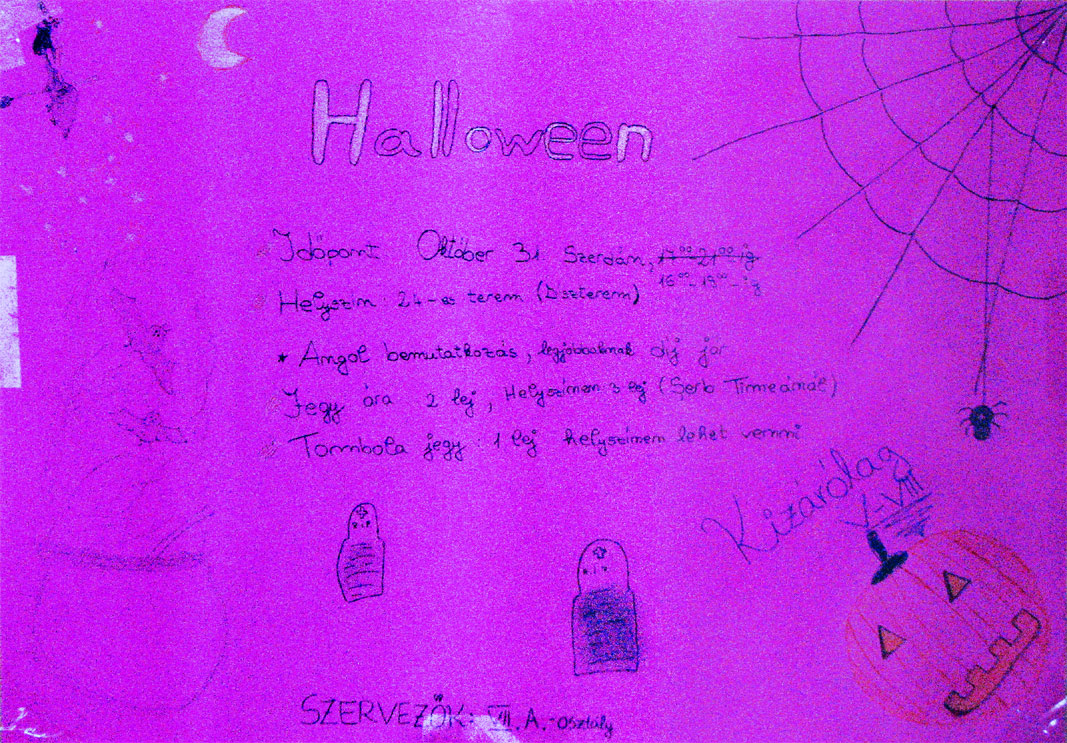 Halloween
Időpont Október 31 Szerdán, 17⁰⁰-21⁰⁰-ig
16⁰⁰-19⁰⁰-ig
Helyszín: 24-es terem (Díszterem)
* Angol bemutatkozás, legjobbaknak díj jár
Jegy ára: 2 lej, Helyszínen 3 lej (Serb Timeánál)
Tombola jegy: 1 lej helyszínen lehet venni
Kizárólag
V-VIII
R.I.P
R.I.P
SZERVEZŐK: VIII. A.-osztály